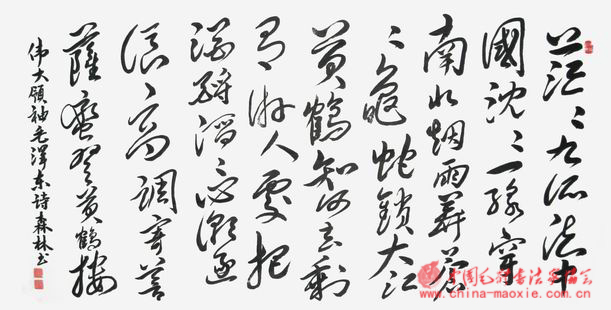 茫〻九派流中
國沈〻一線穿
南北烟雨莽蒼
〻龜蛇鎖大江
黄鶴知何去剩
有游人處把
酒酹滔〻心潮逐
浪高調寄菩
薩蠻登黄鶴楼
伟大領袖毛澤東詩森林书
www.china-maoxie.com